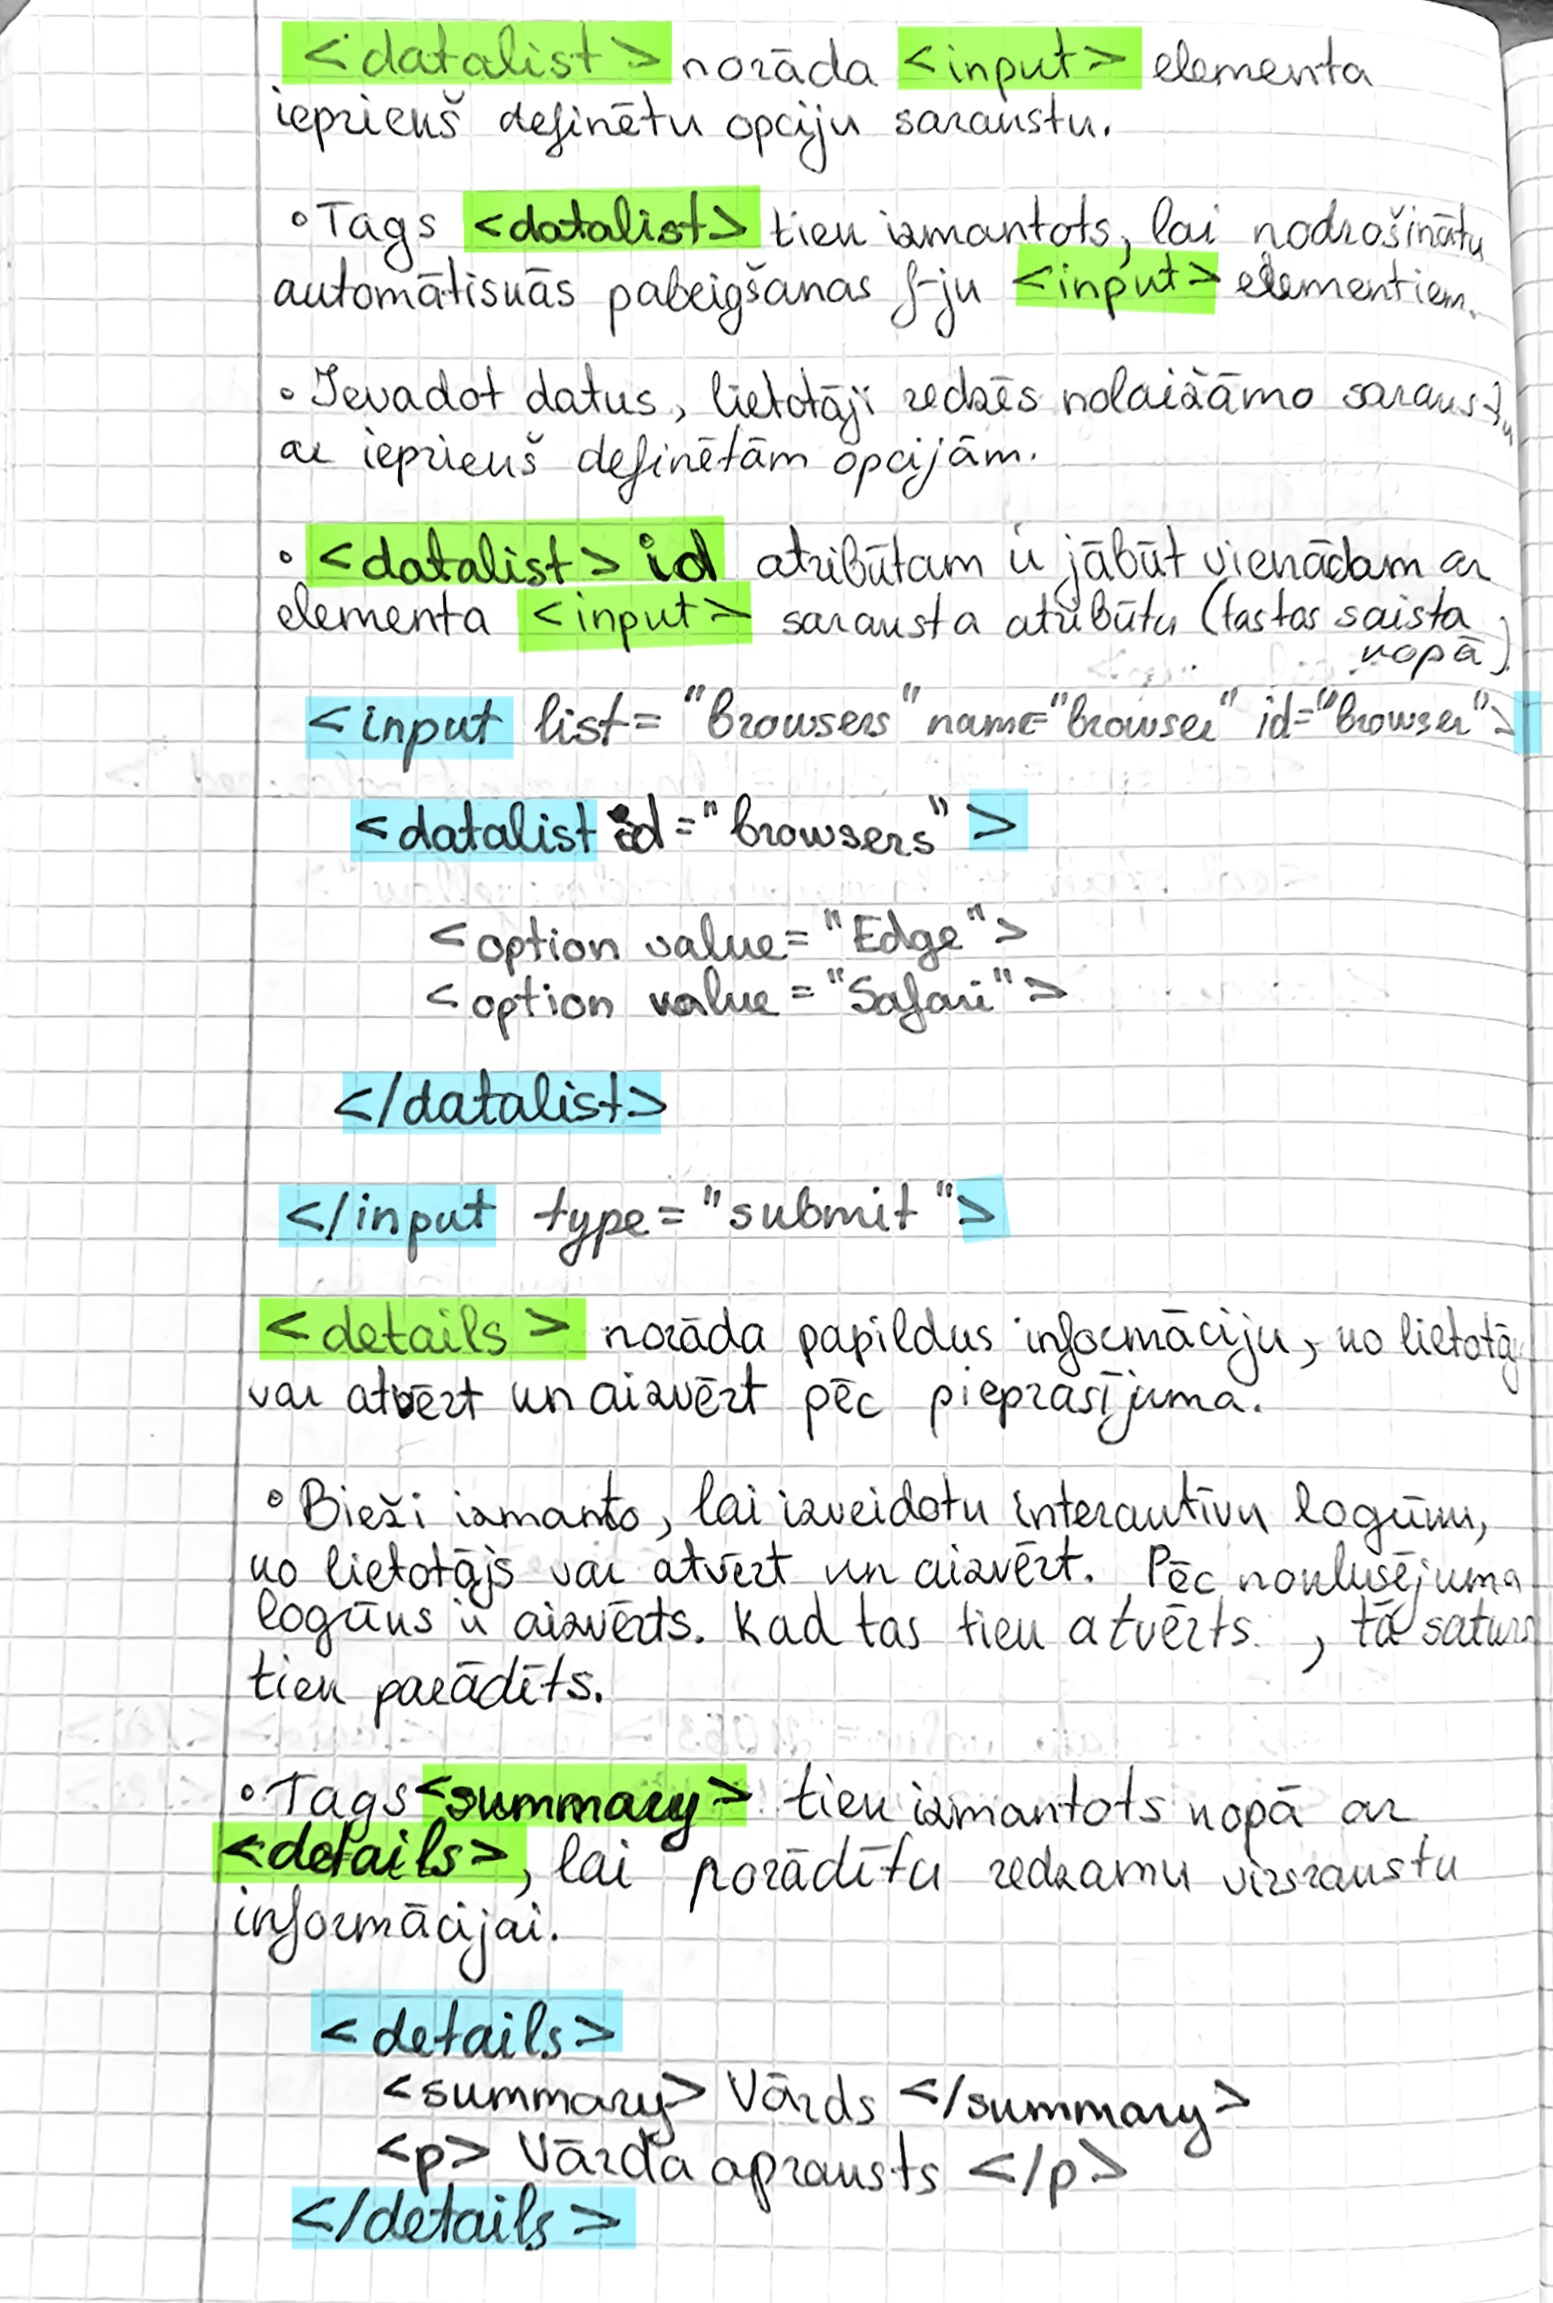 <datalist> norāda <input> elementa
iepriekš definētu opciju sarakstu.
• Tags <datalist> tiek izmantots, lai nodrošinātu
automātiskās pabeigšanas f-ju <input> elementiem.
• Ievadot datus, lietotāji redzēs nolaižāmo sarakstu
ar iepriekš definētām opcijām.
• <datalist> id atribūtam ir jābūt vienādam ar
elementa <input> saraksta atribūtu (tas tos saista
kopā).
<input list="browsers" name="browser" id="browser">
<datalist id="browsers">
<option value="Edge">
<option value="Safari">
</datalist>
</input type="submit">
<details> norāda papildus informāciju, ko lietotāj
var atvērt un aizvērt pēc pieprasījuma.
• Bieži izmanto, lai izveidotu interaktīvu logūku,
ko lietotājs var atvērt un aizvērt. Pēc noklusējuma
logūks ir aizvērts. Kad tas tiek atvērts, tā saturs
tiek parādīts.
• Tags <summary> tiek izmantots kopā ar
<details>, lai norādītu redzamu virsrakstu
informācijai.
<details>
<summary> Vārds </summary>
<p> Vārda apraksts </p>
</details>